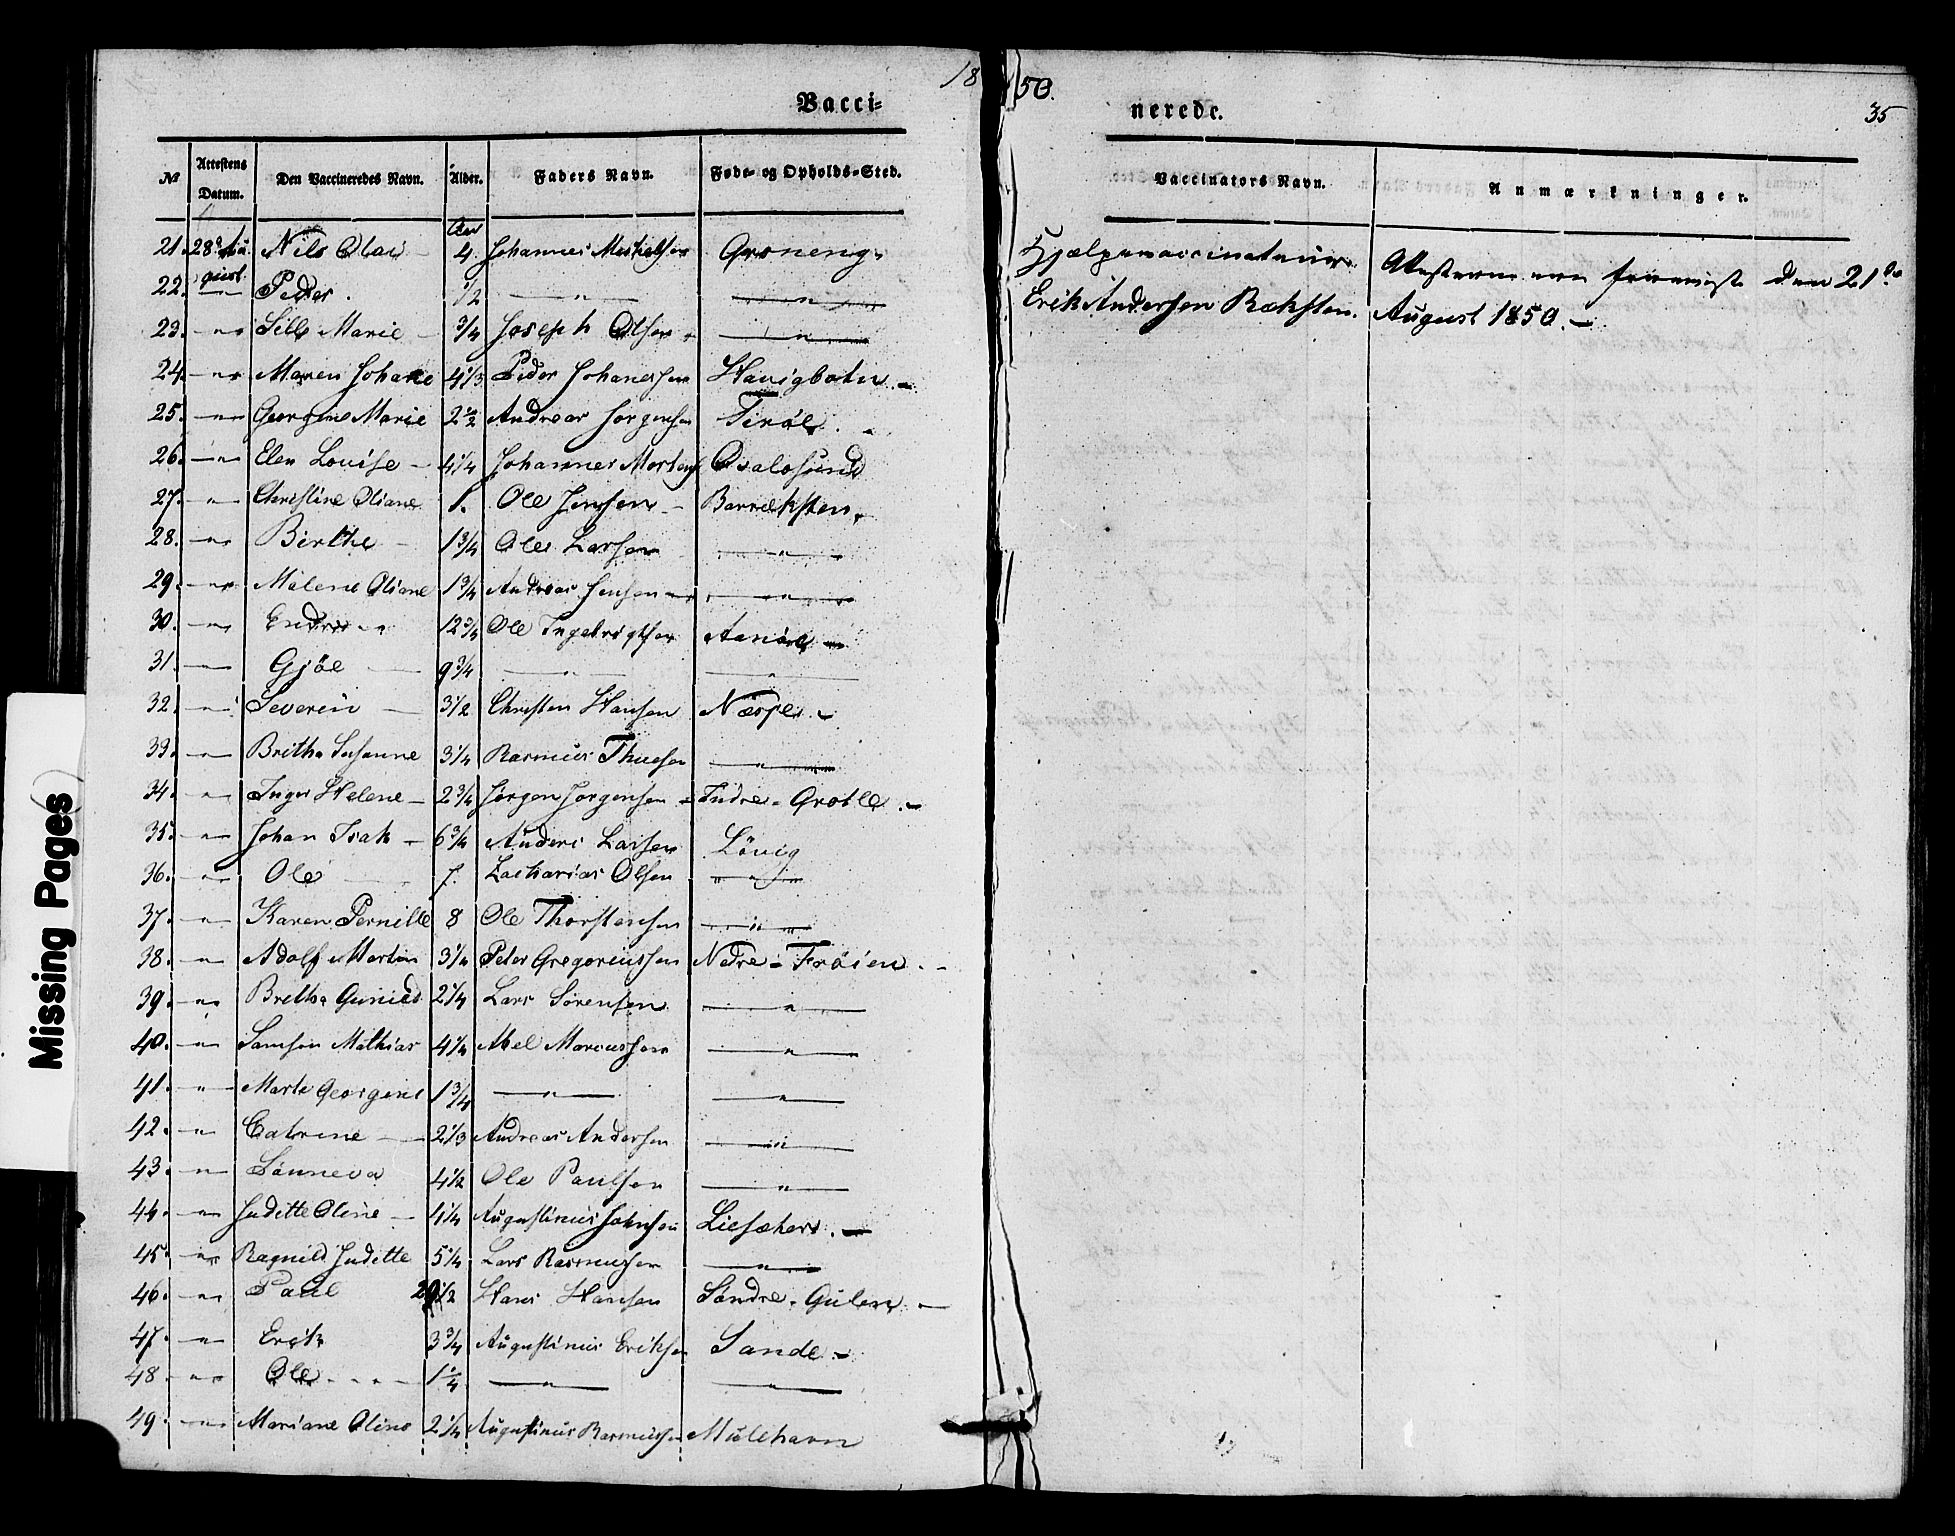 18 50.
Vacci-
nerede.
35
No Attestens Datum. Den Vaccineredes Navn. Alder. Faders Navn. Føde- og Opholds-Sted.
Vaccinators Navn. Anmærkninger.
Aar
21. 28de Au- Nils Olai - 4 Johannes Groneng
gust
22. — Peder. 1/2 —„— —„—
23. —„— Sille Marie - 3/4 Joseph Olsen —„—
24. —„— Maren Johane 4 1/3 Peder Johanessen Havigbotn -
25. —„— Georgine Marie 2 1/2 Andreas Jorgensen Terøe. -
26. —„— Elen Louise - 4 1/4 Johannes Mortens Qvalosund
27. —„— Christine Oliane 1. Ole Jensen - Barræksten.
28. —„— Birthe - 1 3/4 Ole Larsen —„—
29. —„— Malene Oliane 1 3/4 Andreas Jensen —„—
30. —„— Endre 12 3/4 Ole Ingebrigtsen Aarøe -
31. — Gjøe — 9 3/4 —„— —„—
32. —„— Severin — 3 1/2 Christen Hansen Næsse -
33. —„— Britha Susanne 3 1/4 Rasmus Thuesen —„—
34. —„— Inger Helene - 2 3/4 Jørgen Jorgensen Indre - Grotle. -
35. —„— Johan Isak - 6 3/4 Anders Larsen Løvig
36. —„— Ole 7. Zacharias Olsen —„—
37. —„— Karen Pernille 8 Ole Thorstensen —„—
38. —„— Adolf Martin 3 1/4 Peter Gregoriussen Nedre - Frøien. -
39. —„— Britha Gunild 2 1/4 Lars Sørensen —„—
40. —„— Samson Mathias 4 1/4 Abel Marcussen —„—
41. —„— Marte Georgine 1 3/4 —„— —„—
42. —„— Catrine — 2 1/3 Andreas Andersen —„—
43. —„— Sønneva 4 1/2 Ole Paulsen —„—
44. —„— Juditte Oline - 4 1/4 Augustinus Johnsen Liesæter. -
45. —„— Ragnild Juditte 5 1/4 Lars Rasmussen —„—
46. —„— Paul 1/2 Hans Hansen Søndre - Gulen. -
47. —„— Erik 3 3/4 Augustinus Eriksen Sande. -
48. —„— Ole - 1 1/4 —„— —„—
49. —„— Mariane Oline 2 1/4 Augustinus Rasmussen Mulehavn
Hjælpevaccinateur
Erik AndersenRæksten.
Attesterne ere den 21de
August 1850. -
Missing Pages